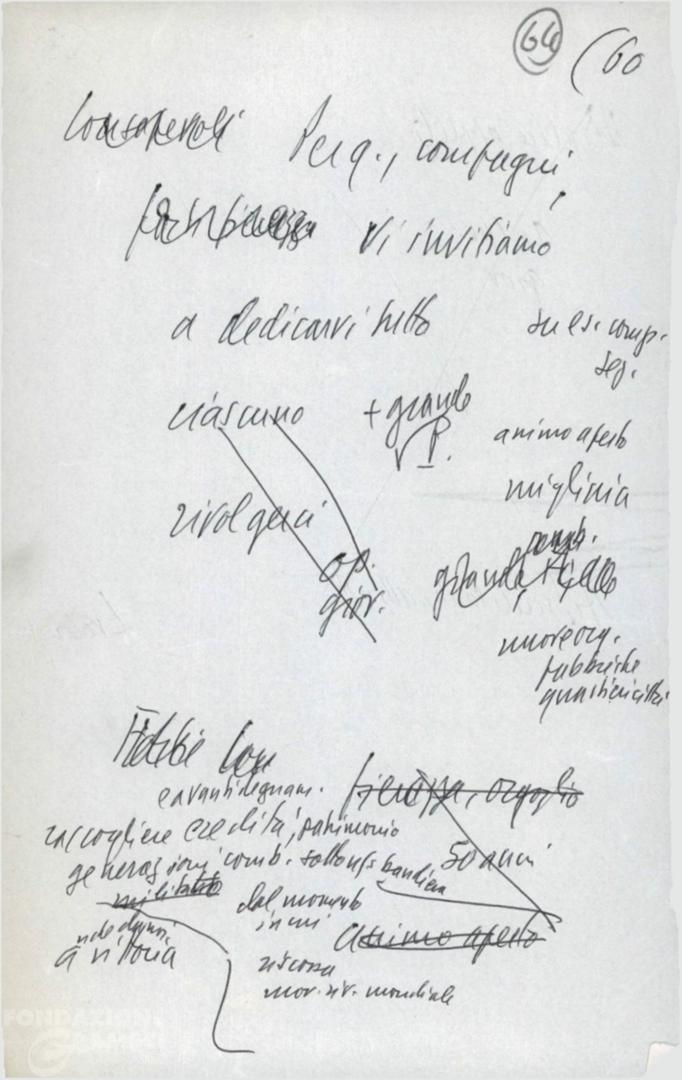 64 (60
Consapevoli Per q., compagni,
vi invitiamo
a dedicarvi tutto
su es. comp.
seg.
ciascuno + grande
P.
animo aperto
migliaia
rivolgerci
op.
gior.
comb.
grande
nuove org.
fabbriche
quartieri città
e avanti degnam. fierezza, orgoglio
raccogliere eredità, patrimonio
generazioni comb. sotto ns bandiera 50 anni
dal momento
in cui animo aperto
a vittoria
riscossa
mov. riv. mondiale
FONDAZIONE
GRAMSCI